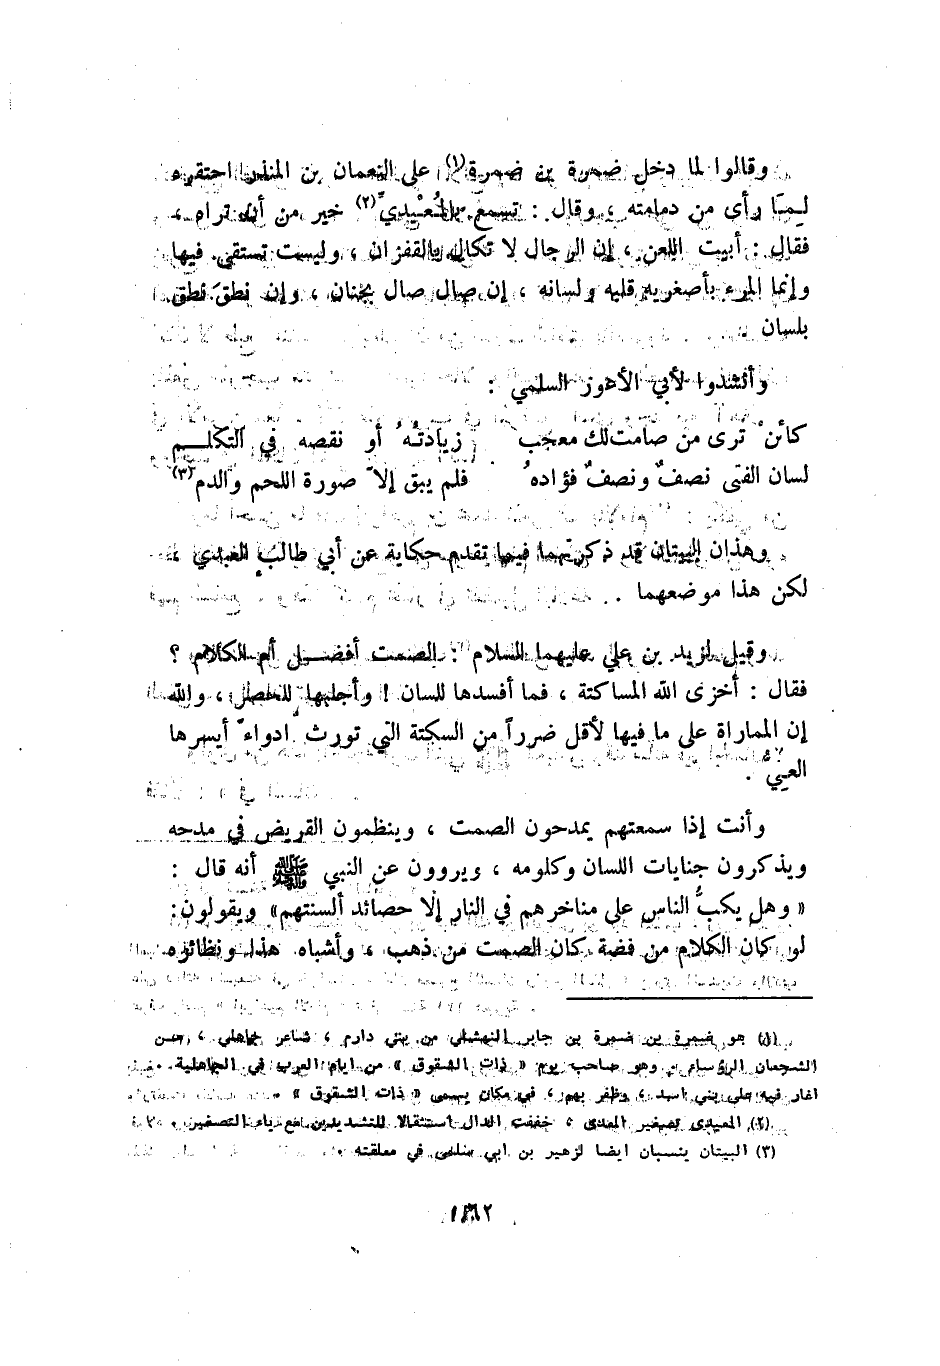 وقالوا لما دخل ضمرة بن ضمرة(١) على النعمان بن المنذر احتقره
لما رأى من دمامته ، وقال : تسمع بالمُعَيْديّ(٢) خير من أن تراه ،
فقال : أبيت اللعن ، إن الرجال لا تكال بالقفزان ، وليست تستقى فيها
وإنما المرء بأصغريه قلبه ولسانه ، إن صال صال بجنان ، وإن نطق نطق
بلسان .
وأنشدوا لأبي الأهوز السلمي :
كائنْ ترى من صامت لك معجب زيادتُهُ أو نقصه في التكلم
لسان الفتى نصفٌ ونصفٌ فؤادهُ فلم يبق إلاّ صورة اللحم والدم(٣)
وهذان البيتان قد ذكرتهما فيما تقدم حكاية عن أبي طالب العبدي ،
لكن هذا موضعهما .
وقيل لزيد بن علي عليهما السلام : الصمت أفضل أم الكلام ؟
فقال : أخزى الله المساكتة ، فما أفسدها للسان ! وأجلبها للحصر ، والله
إن المماراة على ما فيها لأقل ضرراً من السكتة التي تورث ادواءً أيسرها
العيُّ .
وأنت إذا سمعتهم يمدحون الصمت ، وينظمون القريض في مدحه
ويذكرون جنايات اللسان وكلومه ، ويروون عن النبي ﷺ أنه قال :
« وهل يكبُّ الناس على مناخرهم في النار إلا حصائد ألسنتهم» ويقولون:
لو كان الكلام من فضة كان الصمت من ذهب ، وأشباه هذا ونظائره
(١) هو ضمرة بن ضمرة بن جابر النهشلي من بني دارم ، شاعر جاهلي ، من
الشجعان الرؤساء ، وهو صاحب يوم « ذات الشقوق » من ايام العرب في الجاهلية .
اغار فيه على بني اسد ، وظفر بهم ، في مكان يسمى « ذات الشقوق » .
(٢) المعيدي تصغير المعدي ، خففت الدال استثقالا للتشديدين مع ياء التصغير .
(٣) البيتان ينسبان ايضا لزهير بن ابي سلمى في معلقته .